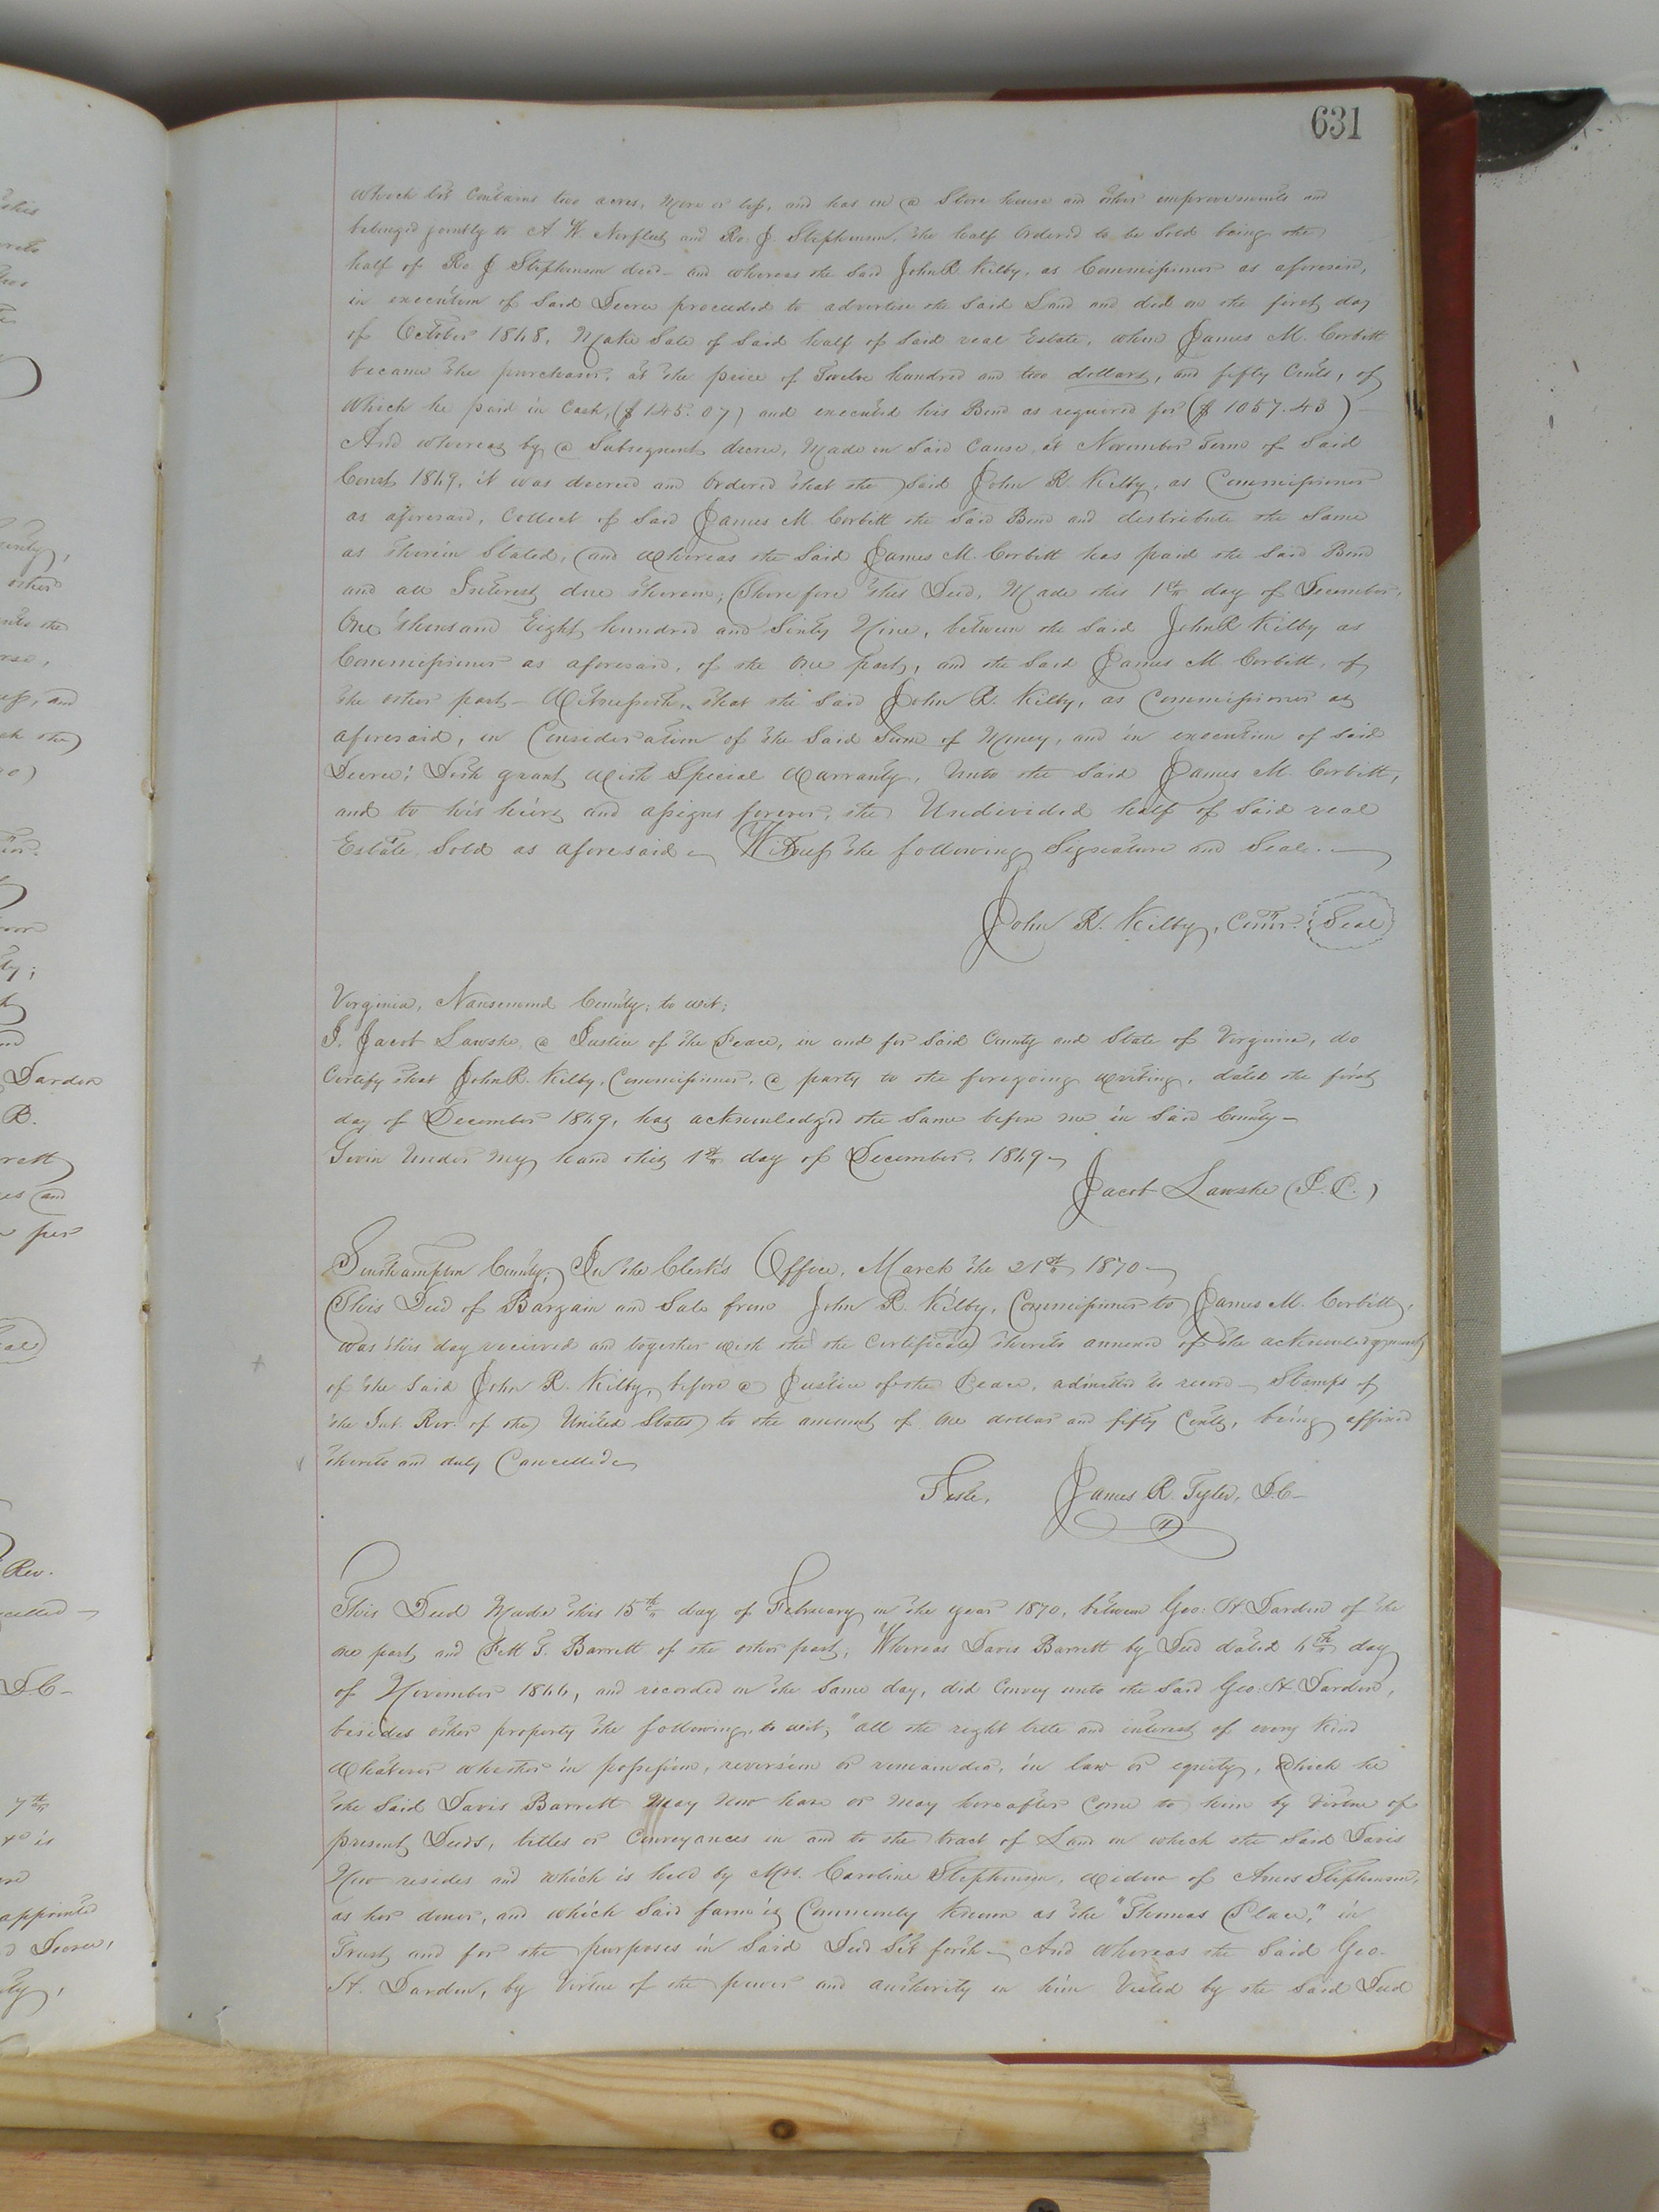 631
which lot Contains two acres, more or less, and has on a Store house and other improvements and
belonged jointly to A. W. Norfleet and Ro. J. Stephenson, the half Ordered to be Sold being the
half of Ro J Stephenson decd - and whereas the said John R. Kilby, as Commissioner as aforesaid,
in execution of Said Decree proceeded to advertise the Said Land and did on the first day
of October 1868, Make Sale of Said half of Said real Estate, when James M. Corbitt
became the purchaser, at the price of Twelve hundred and two dollars, and fifty Cents, of
Which he paid in Cash, ($ 145.07) and executed his Bond as required for ($ 1057.43) -
And whereas by a Subsequent decree, Made in Said Cause, at November Term of Said
Court 1869, it was decreed and Ordered that the Said John R. Kilby, as Commissioner
as aforesaid, Collect of Said James M. Corbitt the Said Bond and distribute the Same
as therein Stated, and Whereas the Said James M. Corbitt has paid the Said Bond
and all Interest due thereon; Therefore This Deed, Made this 1st day of December,
One thousand Eight hundred and Sixty Nine, between the Said John R Kilby as
Commissioner as aforesaid, of the One part, and the Said James M. Corbitt, of
the other part - Witnesseth, that the Said John R. Kilby, as Commissioner as
aforesaid, in Consideration of the Said Sum of Money, and in execution of said
Decree; Doth grant with Special Warranty, Unto the Said James M. Corbitt,
and to his heirs and assigns forever, the Undivided half of Said real
Estate Sold as aforesaid - Witness the following Signature and Seal. -
John R. Kilby, Comr. Seal
Virginia, Nansemond County; to wit;
I, Jacob Lawshe a Justice of the Peace, in and for Said County and State of Virginia, do
Certify that John R. Kilby, Commissioner, a party to the foregoing writing, dated the first
day of December 1869, has acknowledged the Same before me in Said County -
Given Under my hand this 1st day of December, 1869 -
Jacob Lawshe (J. P.)
Southampton County; In the Clerk's Office, March the 21st 1870 -
This Deed of Bargain and Sale from John R. Kilby, Commissioner to James M. Corbitt,
was this day received and together with the the Certificate thereto annexed of the acknowledgment
of the Said John R. Kilby, before a Justice of the Peace, admitted to record - Stamps of
the Int. Rev. of the United States to the amount of One dollar and fifty Cents, being affixed
thereto and duly Cancelled -
Teste, James R. Tyler, D.C -
This Deed Made this 15th day of February in the year 1870, between Geo: H Darden of the
one part and Fett T. Barrett of the other part, Whereas Davis Barrett by Deed dated 6th day
of November 1866, and recorded on the Same day, did Convey unto the Said Geo. H. Darden,
besides other property the following, to wit; "all the right title and interest of every Kind
Whatever whether in possession, reversion or remainder, in law or equity, which he
the Said Davis Barrett May Now have or May hereafter Come to him by Virtue of
present Deeds, titles or Conveyances in and to the tract of Land on which the Said Davis
Now resides and which is held by Mrs. Caroline Stephenson, widow of Amos Stephenson,
as her dower, and which Said farm is Commonly Known as the "Thomas Place," in
Trust and for the purposes in Said Deed Set forth - And Whereas the Said Geo.
H. Darden, by Virtue of the power and authority in him Vested by the Said Deed